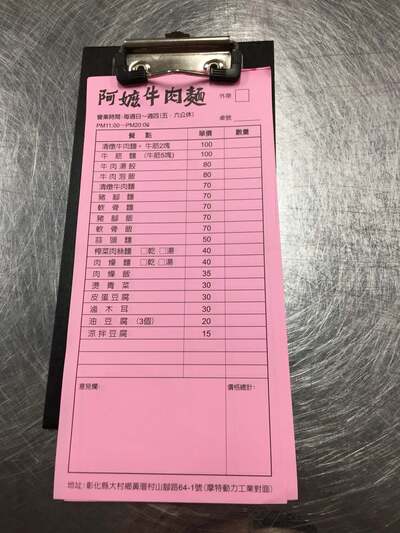 阿嬤牛肉麵 外帶
營業時間:每週日～週四(五、六公休) 桌號
PM11:00～PM20:00
餐 點 單價 數量
清燉牛肉麵+牛筋2塊 100
牛筋麵(牛筋5塊) 100
牛肉湯餃 80
牛肉泡飯 80
清燉牛肉麵 70
豬腳麵 70
軟骨麵 70
豬腳飯 70
軟骨飯 70
蒜頭麵 50
榨菜肉絲麵 □乾 □湯 40
肉燥麵 □乾 □湯 40
肉燥飯 35
燙青菜 30
皮蛋豆腐 30
滷木耳 30
油豆腐(3個) 20
涼拌豆腐 15
意見欄: 價格總計:
地址:彰化縣大村鄉黃厝村山腳路64-1號(摩特動力工業對面)